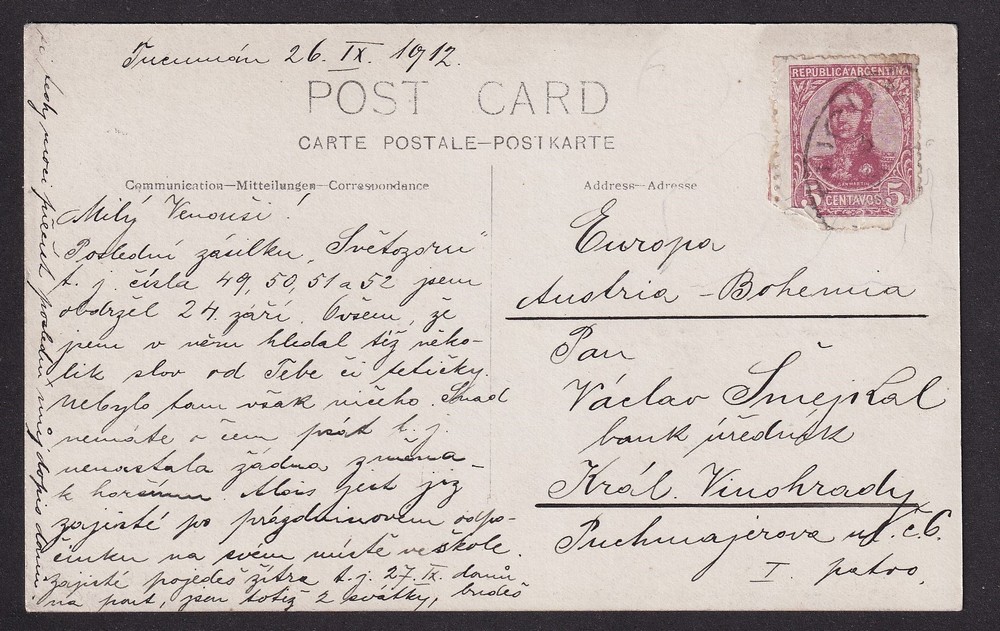 Tucumán 26. IX. 1912.
POST CARD
CARTE POSTALE—POSTKARTE
Communication—Mitteilungen—Correspondance
Address—Adresse
REPUBLICA ARGENTINA
5 CENTAVOS 5
Milý Venouši!
Poslední zásilku „Světozoru"
t. j. čísla 49, 50, 51 a 52 jsem
obdržel 24. září. Ovšem, že
jsem v něm hledal též něko-
lik slov od Tebe či tetičky.
Nebylo tam však ničeho. Snad
nemáte o čem psát t. j.
nenastala žádná změna
k horšímu. Alois jest již
zajisté po prázdninovém odpo-
činku na svém místě ve škole.
Zajisté pojedeš zítra t. j. 27. IX. domů
na pout, jsou totiž 2 svátky, budeš
tedy moci přečíst poslední můj dopis domů.
Europa
Austria - Bohemia
Pan
Václav Šmejkal
bank úředník
Král. Vinohrady
Puchmajerova ul. č. 6.
I. patro.